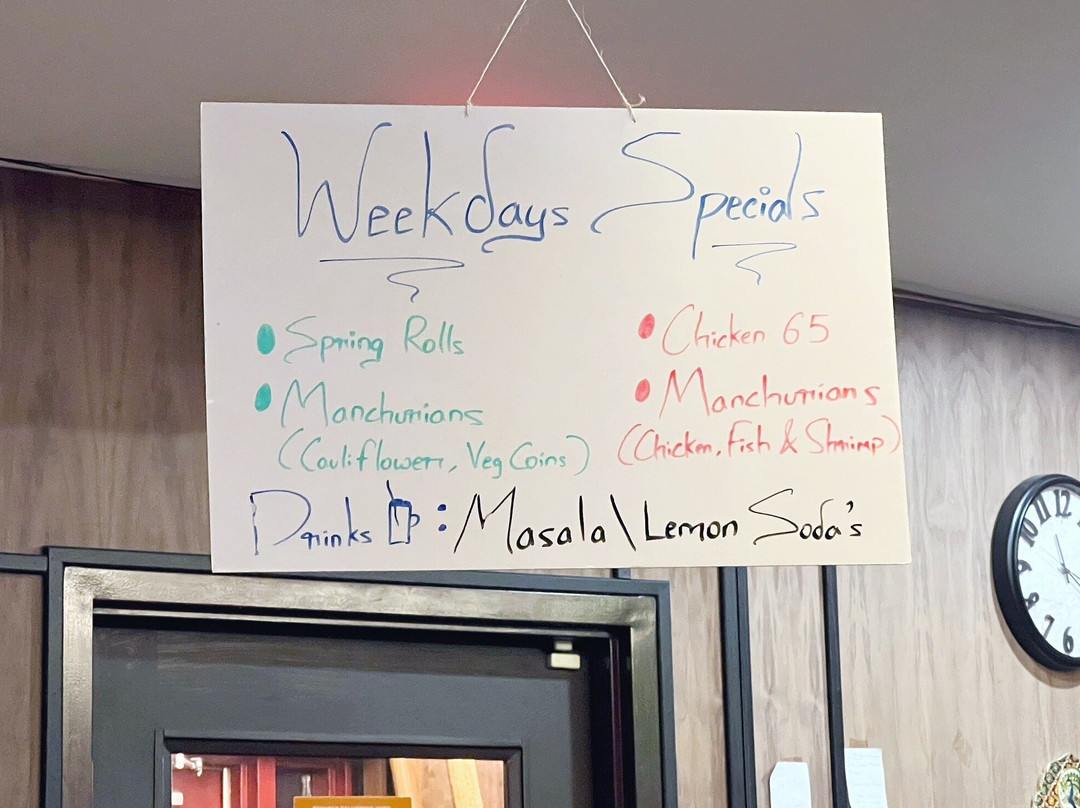 Weekdays Specials
• Spring Rolls
• Manchurians
(Cauliflower, Veg Coins)
• Chicken 65
• Manchurians
(Chicken, Fish & Shrimp)
Drinks : Masala\Lemon Soda's
10 11 12
9
8
7 6